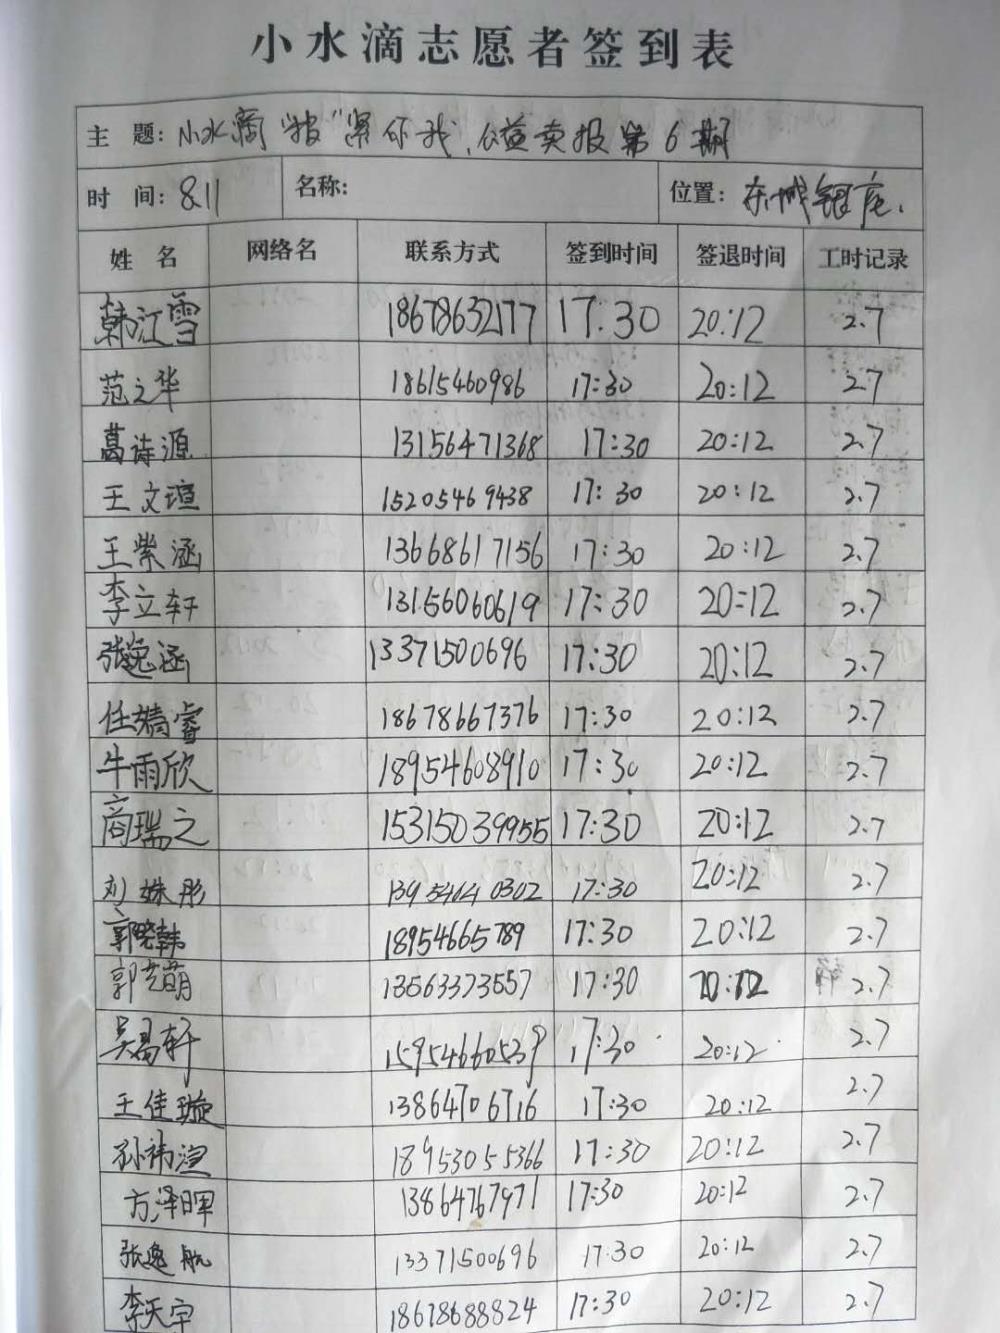 小水滴志愿者签到表
主 题: 小水滴"报"紧你我,公益卖报第6期
时 间: 8.11 名称: 位置: 东城银座.
姓 名 网络名 联系方式 签到时间 签退时间 工时记录
韩江雪 18678632177 17:30 20:12 2.7
范之华 18615460986 17:30 20:12 2.7
葛诗源 13156471368 17:30 20:12 2.7
王文瑄 15205469438 17:30 20:12 2.7
王紫涵 13668617156 17:30 20:12 2.7
李立轩 13156060619 17:30 20:12 2.7
张逸涵 13371500696 17:30 20:12 2.7
任婧睿 18678667376 17:30 20:12 2.7
牛雨欣 18954608910 17:30 20:12 2.7
商瑞之 15315039955 17:30 20:12 2.7
刘姝彤 13954640302 17:30 20:12 2.7
郭晓韩 18954665789 17:30 20:12 2.7
郭艺萌 13563373557 17:30 20:12 2.7
吴易轩 15954660539 17:30 20:12 2.7
王佳璇 13864706716 17:30 20:12 2.7
孙祎渲 18953055366 17:30 20:12 2.7
方泽晖 13864767971 17:30 20:12 2.7
张逸航 13371500696 17:30 20:12 2.7
李天宇 18678688824 17:30 20:12 2.7